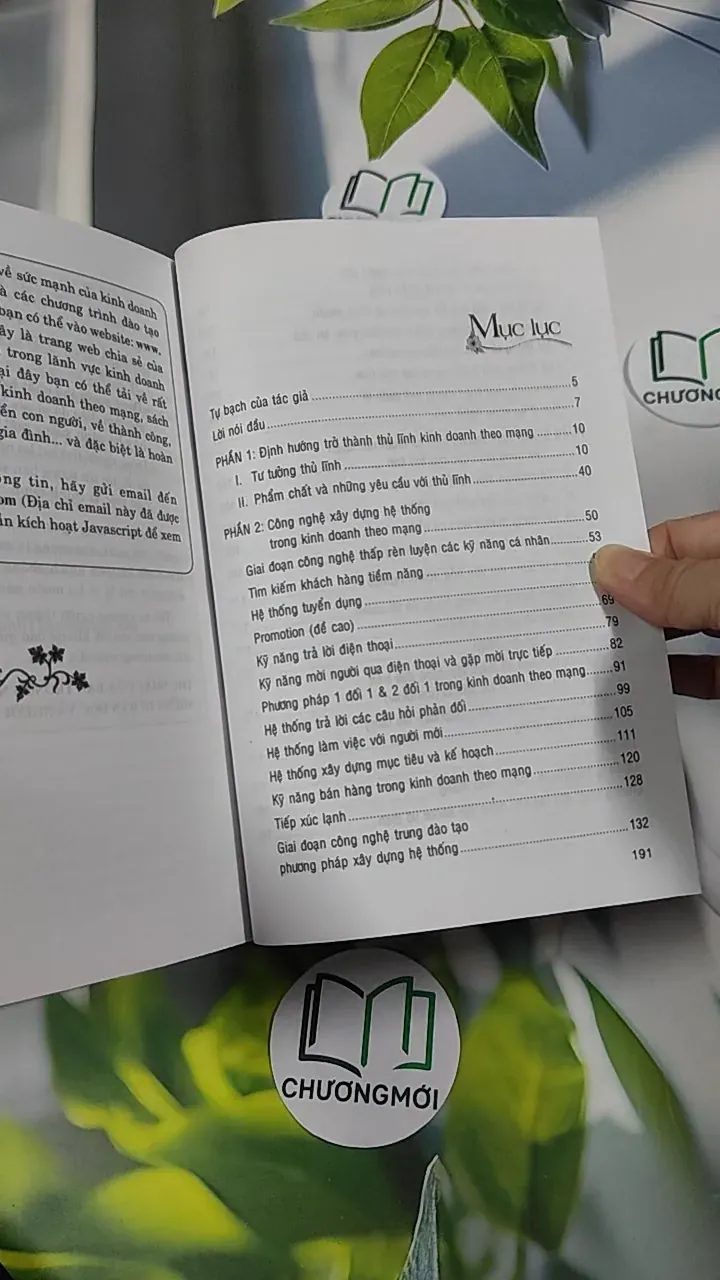 về sức mạnh của kinh doanh
à các chương trình đào tạo
bạn có thể vào website: www.
ây là trang web chia sẻ của
trong lãnh vực kinh doanh
ại đây bạn có thể tải về rất
kinh doanh theo mạng, sách
ển con người, về thành công,
gia đình... và đặc biệt là hoàn
ng tin, hãy gửi email đến
om (Địa chỉ email này đã được
ần kích hoạt Javascript để xem
Mục lục
Tự bạch của tác giả 5
Lời nói đầu 7
PHẦN 1: Định hướng trở thành thủ lĩnh kinh doanh theo mạng 10
I. Tư tưởng thủ lĩnh 10
II. Phẩm chất và những yêu cầu với thủ lĩnh 40
PHẦN 2: Công nghệ xây dựng hệ thống
trong kinh doanh theo mạng 50
Giai đoạn công nghệ thấp rèn luyện các kỹ năng cá nhân 53
Tìm kiếm khách hàng tiềm năng
Hệ thống tuyển dụng
Promotion (đề cao) 69
Kỹ năng trả lời điện thoại 79
Kỹ năng mời người qua điện thoại và gặp mời trực tiếp 82
Phương pháp 1 đối 1 & 2 đối 1 trong kinh doanh theo mạng 91
Hệ thống trả lời các câu hỏi phản đối 99
Hệ thống làm việc với người mới 105
Hệ thống xây dựng mục tiêu và kế hoạch 111
Kỹ năng bán hàng trong kinh doanh theo mạng 120
Tiếp xúc lạnh 128
Giai đoạn công nghệ trung đào tạo
phương pháp xây dựng hệ thống 132
191
CHƯƠNG
CHƯƠNGMỚI